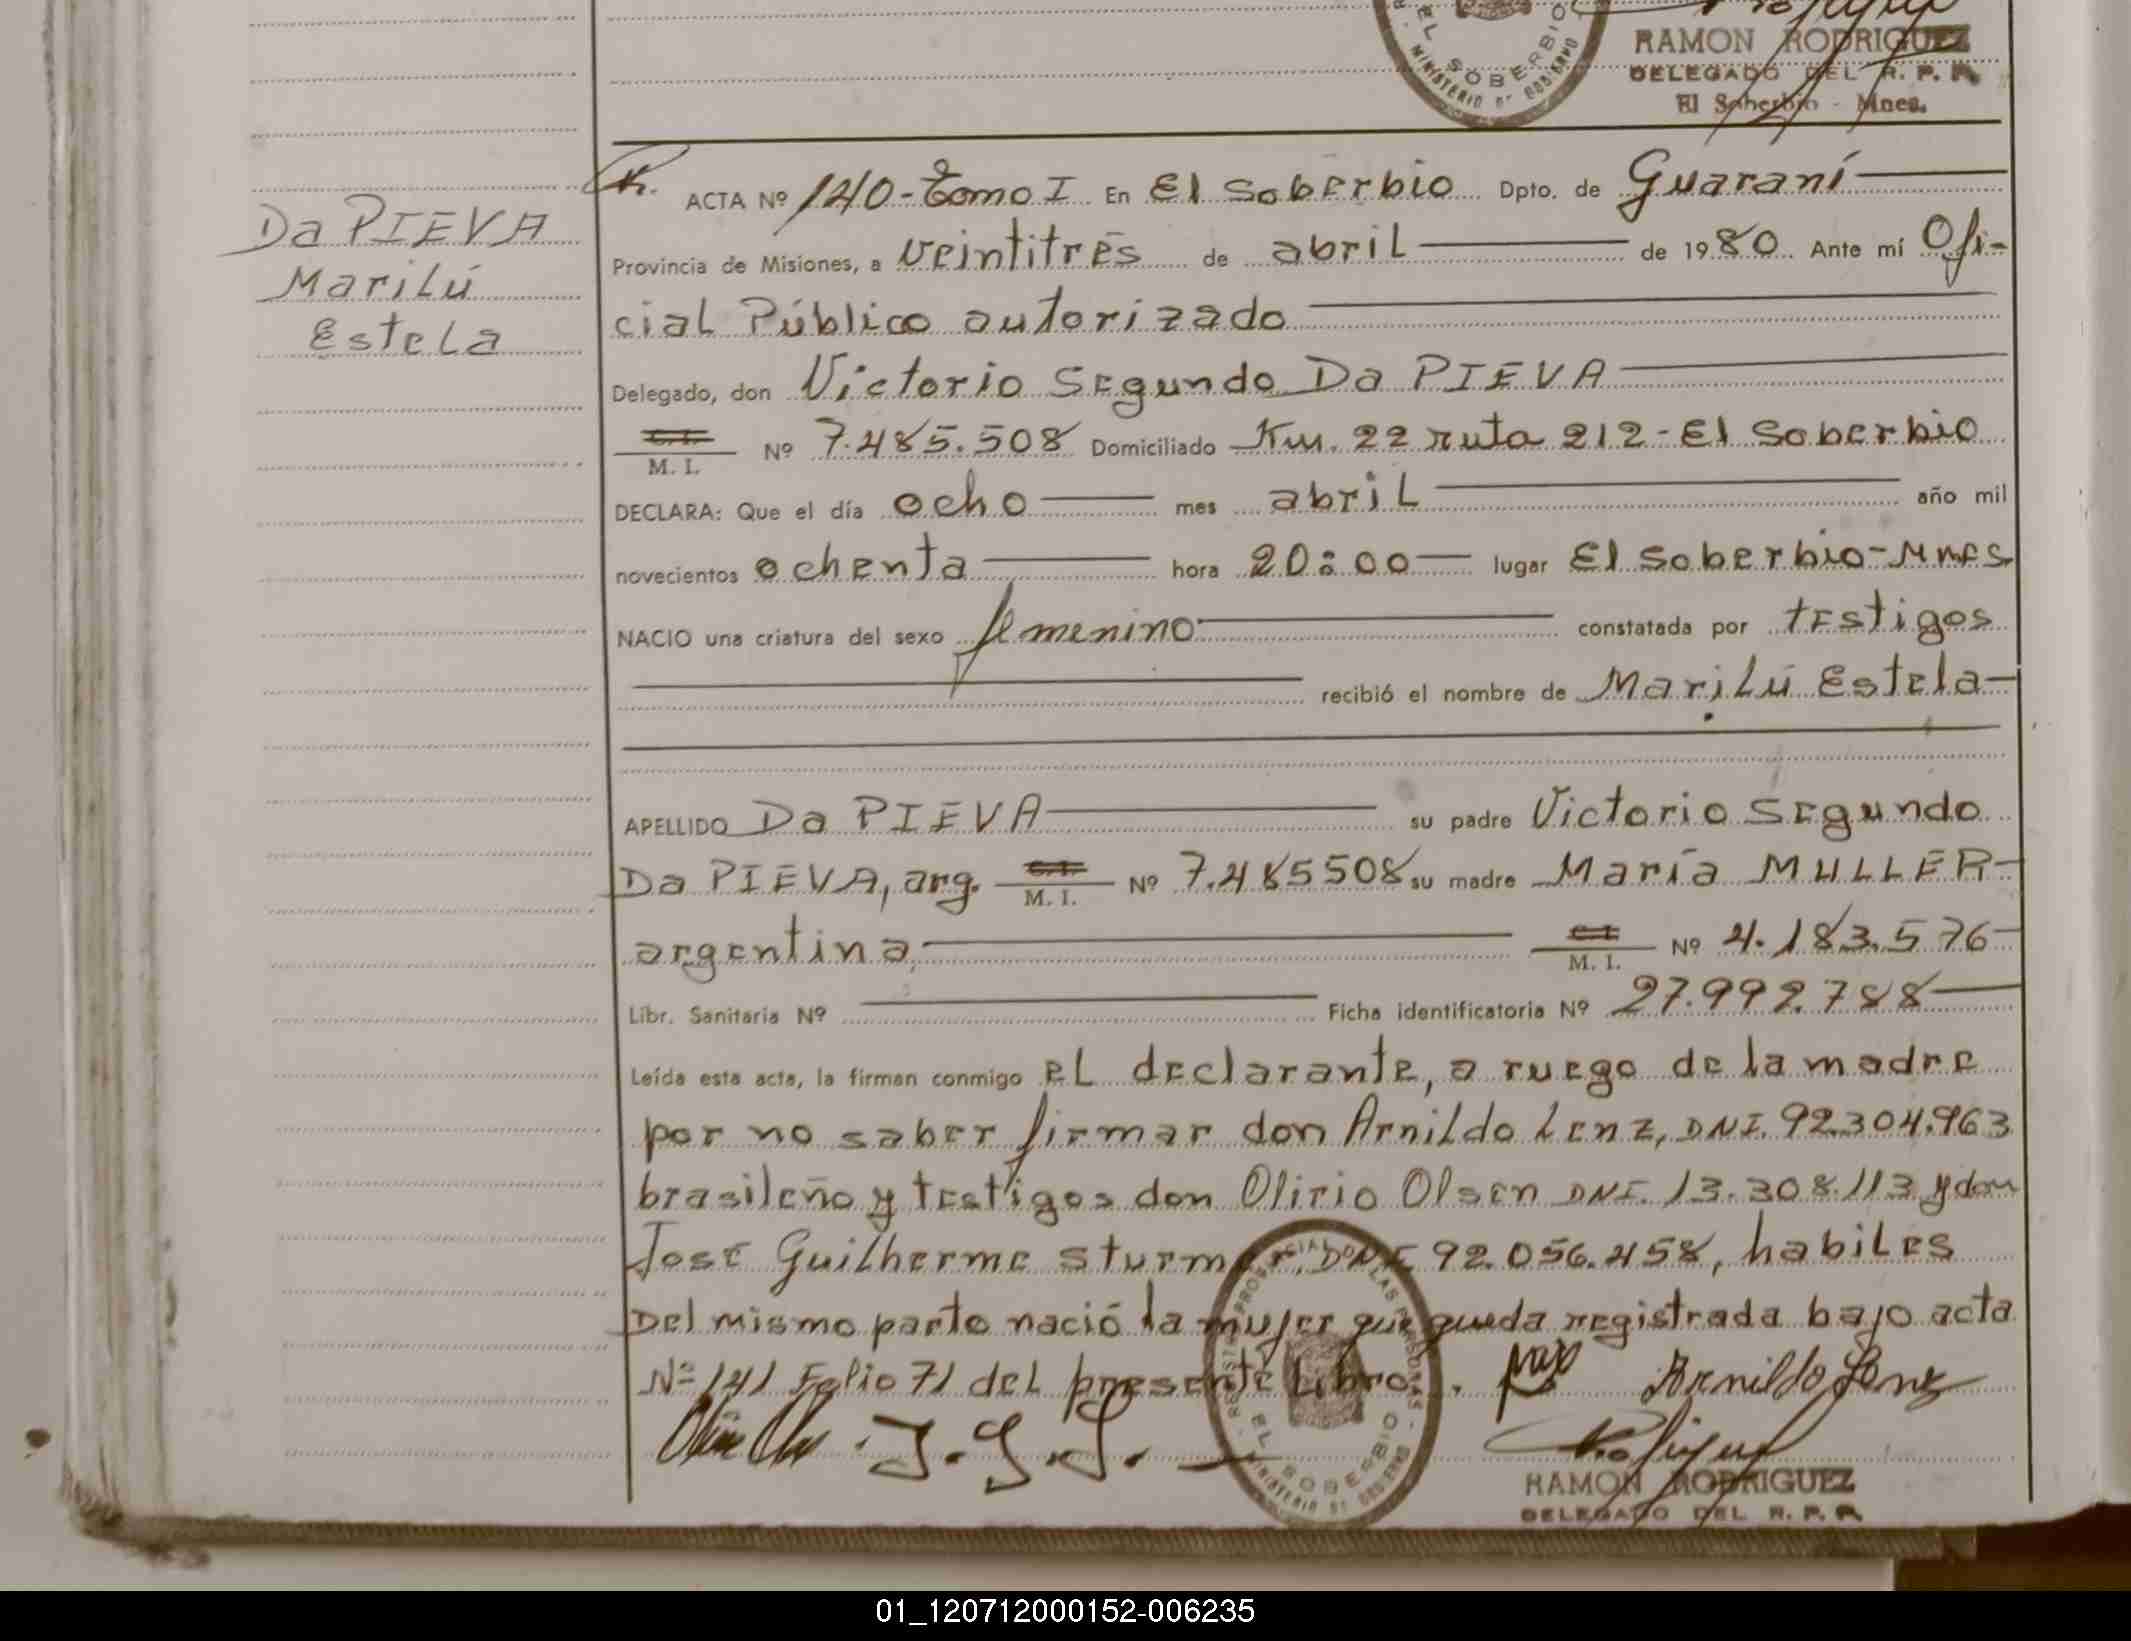 EL SOBERBIO
MINISTERIO DE GOBIERNO
RAMON RODRIGUEZ
DELEGADO DEL R. P. P.
El Soberbio - Mnes.
Da PIEVA
Marilú
Estela
ACTA Nº 140-Tomo I En El Soberbio Dpto. de Guaraní
Provincia de Misiones, a veintitrés de abril de 1980 Ante mí Ofi-
cial Público autorizado
Delegado, don Victorio Segundo Da PIEVA
C.I.
M. I. Nº 7.485.508 Domiciliado Km. 22 ruta 212-El Soberbio
DECLARA: Que el día ocho mes abril año mil
novecientos ochenta hora 20:00 lugar El Soberbio-Mnes
NACIO una criatura del sexo femenino constatada por testigos
recibió el nombre de Marilú Estela
APELLIDO Da PIEVA su padre Victorio Segundo
Da PIEVA, arg. C.I. M. I. Nº 7.485508 su madre María MULLER
argentina C.I. M. I. Nº 4.183.576
Libr. Sanitaria Nº Ficha identificatoria Nº 27.992.788
Leída esta acta, la firman conmigo el declarante, a ruego de la madre
por no saber firmar don Arnildo Lenz, DNI. 92.304.963
brasileño y testigos don Olirio Olsen DNI. 13.308.113 y don
José Guilherme Sturmer, DNI 92.056.458, habiles
Del mismo parto nació la mujer que queda registrada bajo acta
Nº 141 Folio 71 del presente Libro.
Arnildo Lenz
J.G.S.
REGISTRO PROVINCIAL DE LAS PERSONAS
EL SOBERBIO
MINISTERIO DE GOBIERNO
RAMON RODRIGUEZ
DELEGADO DEL R. P. P.
01_120712000152-006235